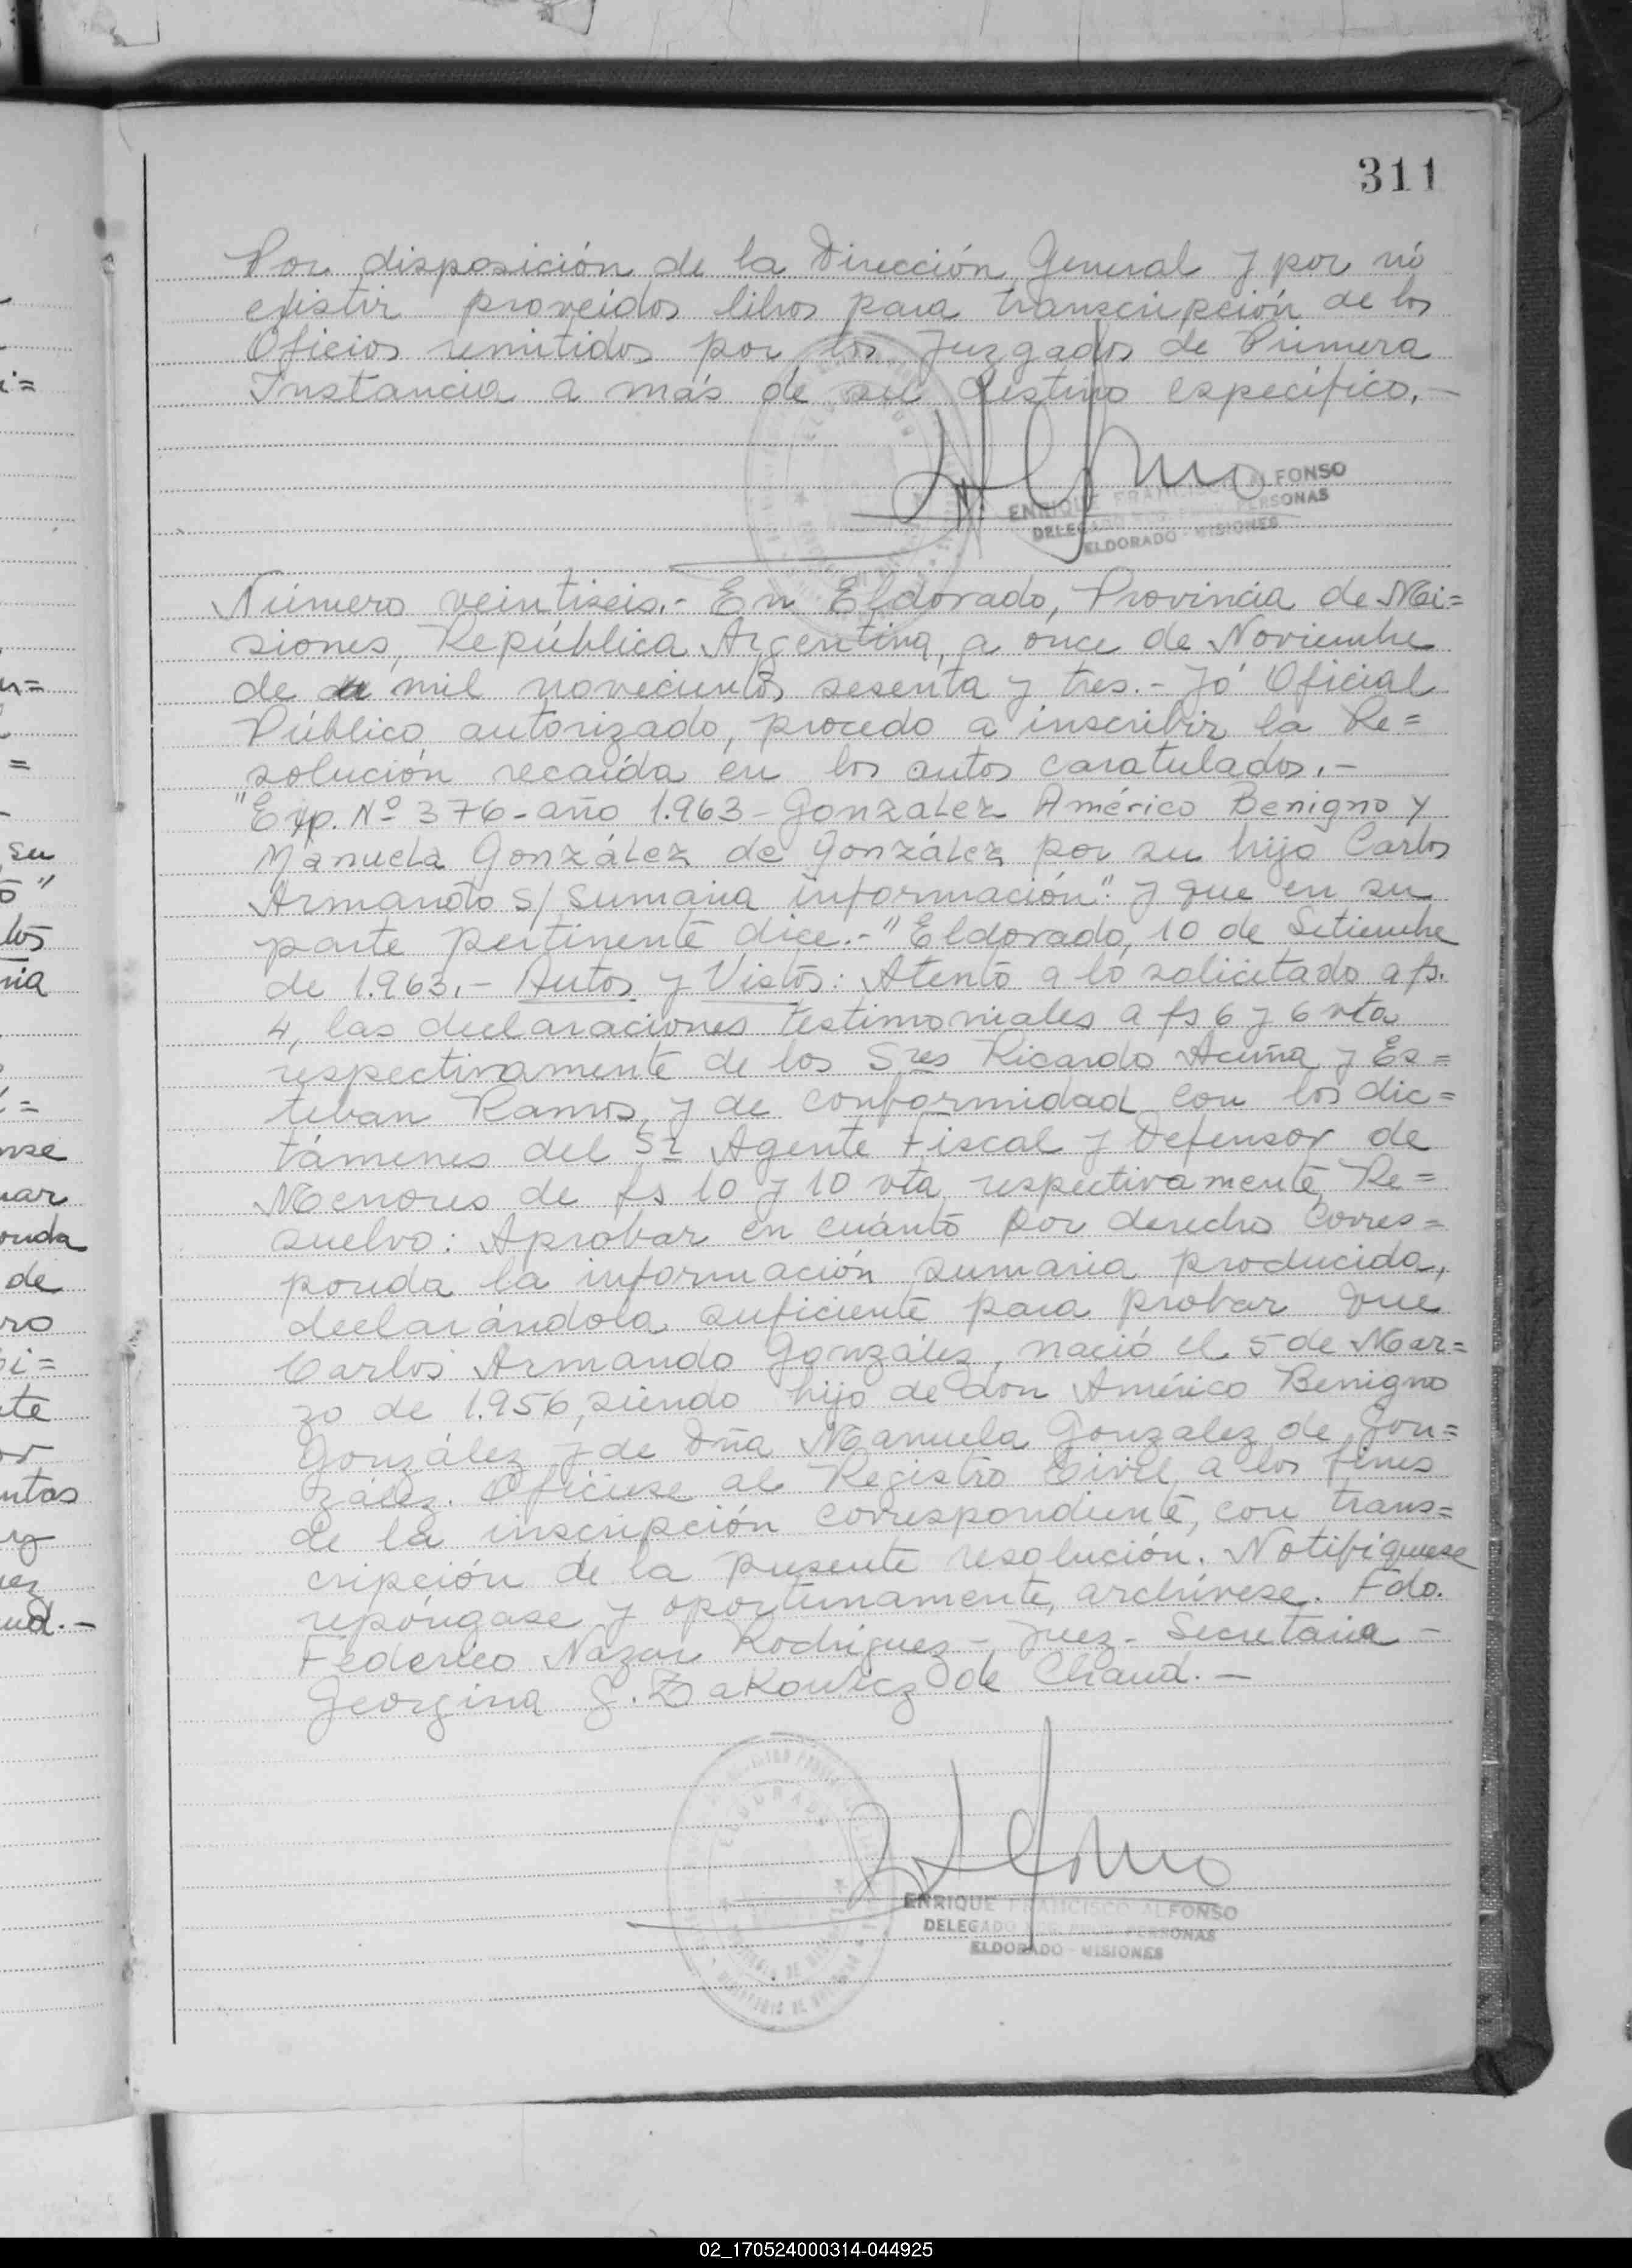 311
Por disposición de la Dirección General y por nó
existir proveídos libros para transcripción de los
Oficios remitidos por los Juzgados de Primera
Instancia a más de su destino específico.-
ENRIQUE FRANCISCO ALFONSO
DELEGADO REG. PROV. PERSONAS
ELDORADO - MISIONES
Número veintiseis.- En Eldorado, Provincia de Mi=
siones, República Argentina, a once de Noviembre
de mil novecientos sesenta y tres.- Yó Oficial
Público autorizado, procedo a inscribir la Re=
solución recaída en los autos caratulados.-
"Exp. Nº 376-año 1.963-Gonzalez Américo Benigno y
Manuela González de González por su hijo Carlos
Armando S/ Sumaria información". y que en su
parte pertinente dice.-"Eldorado, 10 de Setiembre
de 1.963.- Autos y Vistos: Atento a lo solicitado a fs.
4, las declaraciones testimoniales a fs 6 y 6 vta
respectivamente de los Sres Ricardo Acuña y Es=
teban Ramos, y de conformidad con los dic=
támenes del Sr Agente Fiscal y Defensor de
Menores de fs 10 y 10 vta, respectivamente, Re=
suelvo: Aprobar en cuánto por derecho corres=
ponda la información sumaria producida,
declarándola suficiente para probar que
Carlos Armando González, nació el 5 de Mar=
zo de 1.956, siendo hijo de don Américo Benigno
González y de Dña Manuela Gonzalez de Gon=
zález. Ofíciese al Registro Civil a los fines
de la inscripción correspondiente, con trans=
cripción de la presente resolución. Notifíquese
repóngase y oportunamente, archívese. Fdo.
Federico Nazar Rodriguez - Juez - Secretaria -
Georgina S. Zakowicz de Chaud.-
ELDORADO
ENRIQUE FRANCISCO ALFONSO
DELEGADO REG. PROV. PERSONAS
ELDORADO - MISIONES
02_170524000314-044925